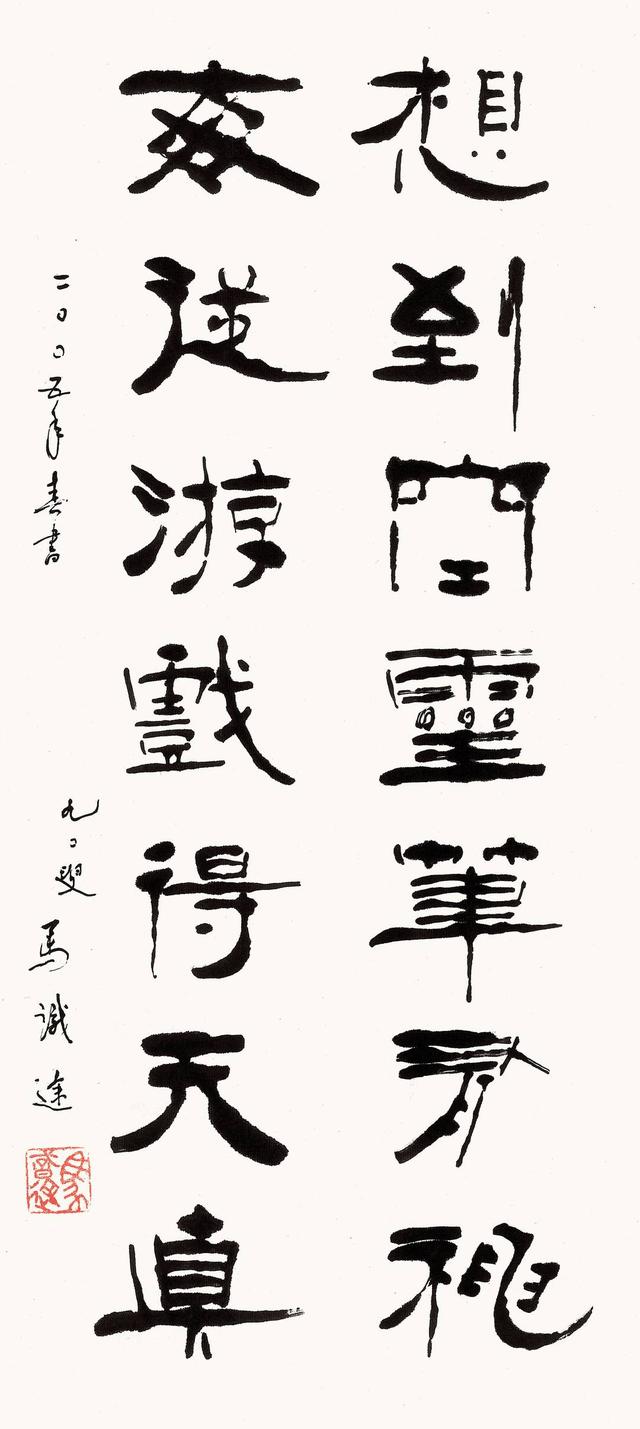 想到空靈筆有神
每從游戲得天真
二〇〇五年春書 九〇叟 馬識途